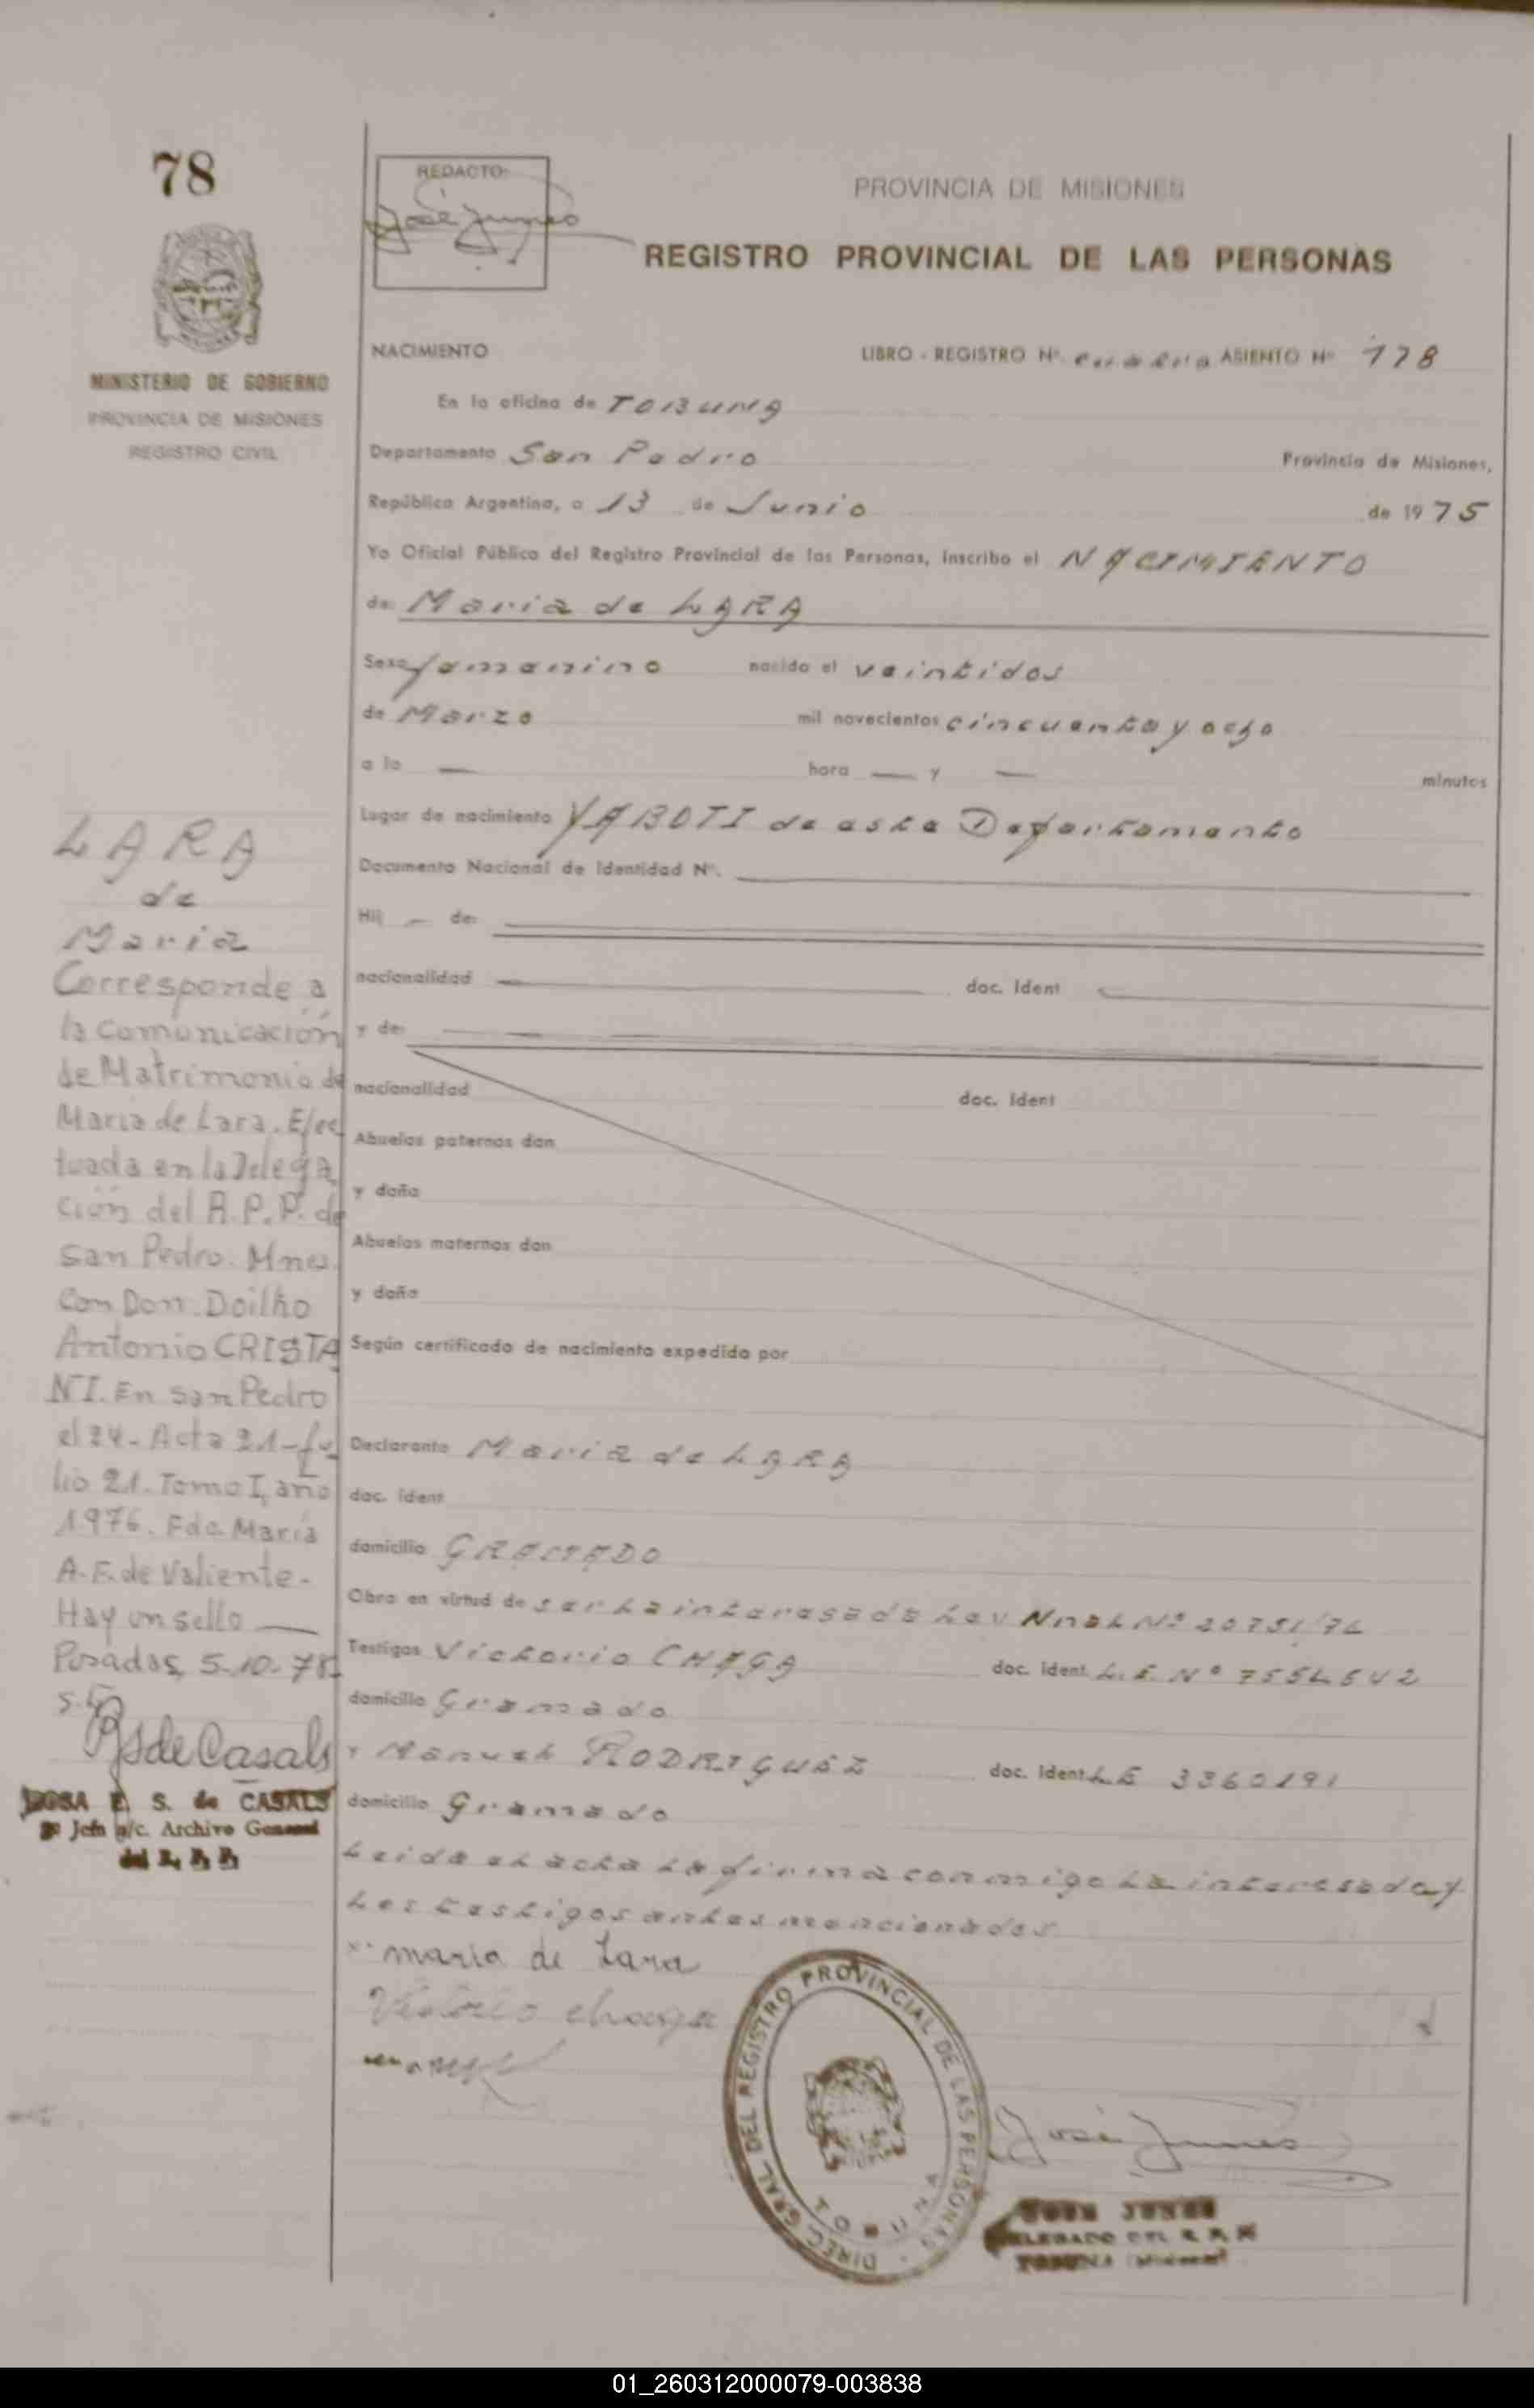 78
REDACTO:
José Junes
PROVINCIA DE MISIONES
REGISTRO PROVINCIAL DE LAS PERSONAS
MINISTERIO DE GOBIERNO
PROVINCIA DE MISIONES
REGISTRO CIVIL
NACIMIENTO LIBRO - REGISTRO Nº ASIENTO Nº 178
En la oficina de TOBUNA
Departamento San Pedro Provincia de Misiones,
República Argentina, a 13 de Junio de 1975
Yo Oficial Público del Registro Provincial de las Personas, inscribo el NACIMIENTO
de: Maria de LARA
Sexo femenino nacido el veintidos
de Marzo mil novecientos cincuenta y ocho
a la — hora — y — minutos
Lugar de nacimiento YABOTI de este Departamento
Documento Nacional de Identidad Nº.
Hij — de:
nacionalidad — doc. Ident
y de:
nacionalidad doc. Ident
Abuelos paternos don
y doña
Abuelos maternos don
y doña
Según certificado de nacimiento expedido por
Declarante Maria de LARA
doc. Ident
domicilio GRAMADO
Obra en virtud de ser la interesada Ley Nnal Nº 20751/74
Testigos Victorio CHAGA doc. Ident L.E. Nº 7554542
domicilio Gramado
y Manuel RODRIGUEZ doc. Ident L E 3360191
domicilio Gramado
Leida el acta la firma conmigo la interesada y
los testigos antes mencionados.
maria de Lara
Victorio chaga
LARA
de
Maria
Corresponde a
la comunicación
de Matrimonio de
Maria de Lara. Efec
tuada en la Delega
ción del R.P.P. de
San Pedro. Mnes.
Con Don. Doilho
Antonio CRISTA
NI. En san Pedro
el 24- Acta 21-fo
lio 21. Tomo I, año
1976. Fdo. María
A. F. de Valiente-
Hay un sello —
Posadas, 5-10-78
RSdeCasals
ROSA E. S. de CASALS
Jefa a/c. Archivo General
del R. P. P.
DIREC. GRAL. DEL REGISTRO PROVINCIAL DE LAS PERSONAS
TOBUNA
José Junes
JOSE JUNES
DELEGADO DEL R. P. P.
TOBUNA (Misiones)
01_260312000079-003838